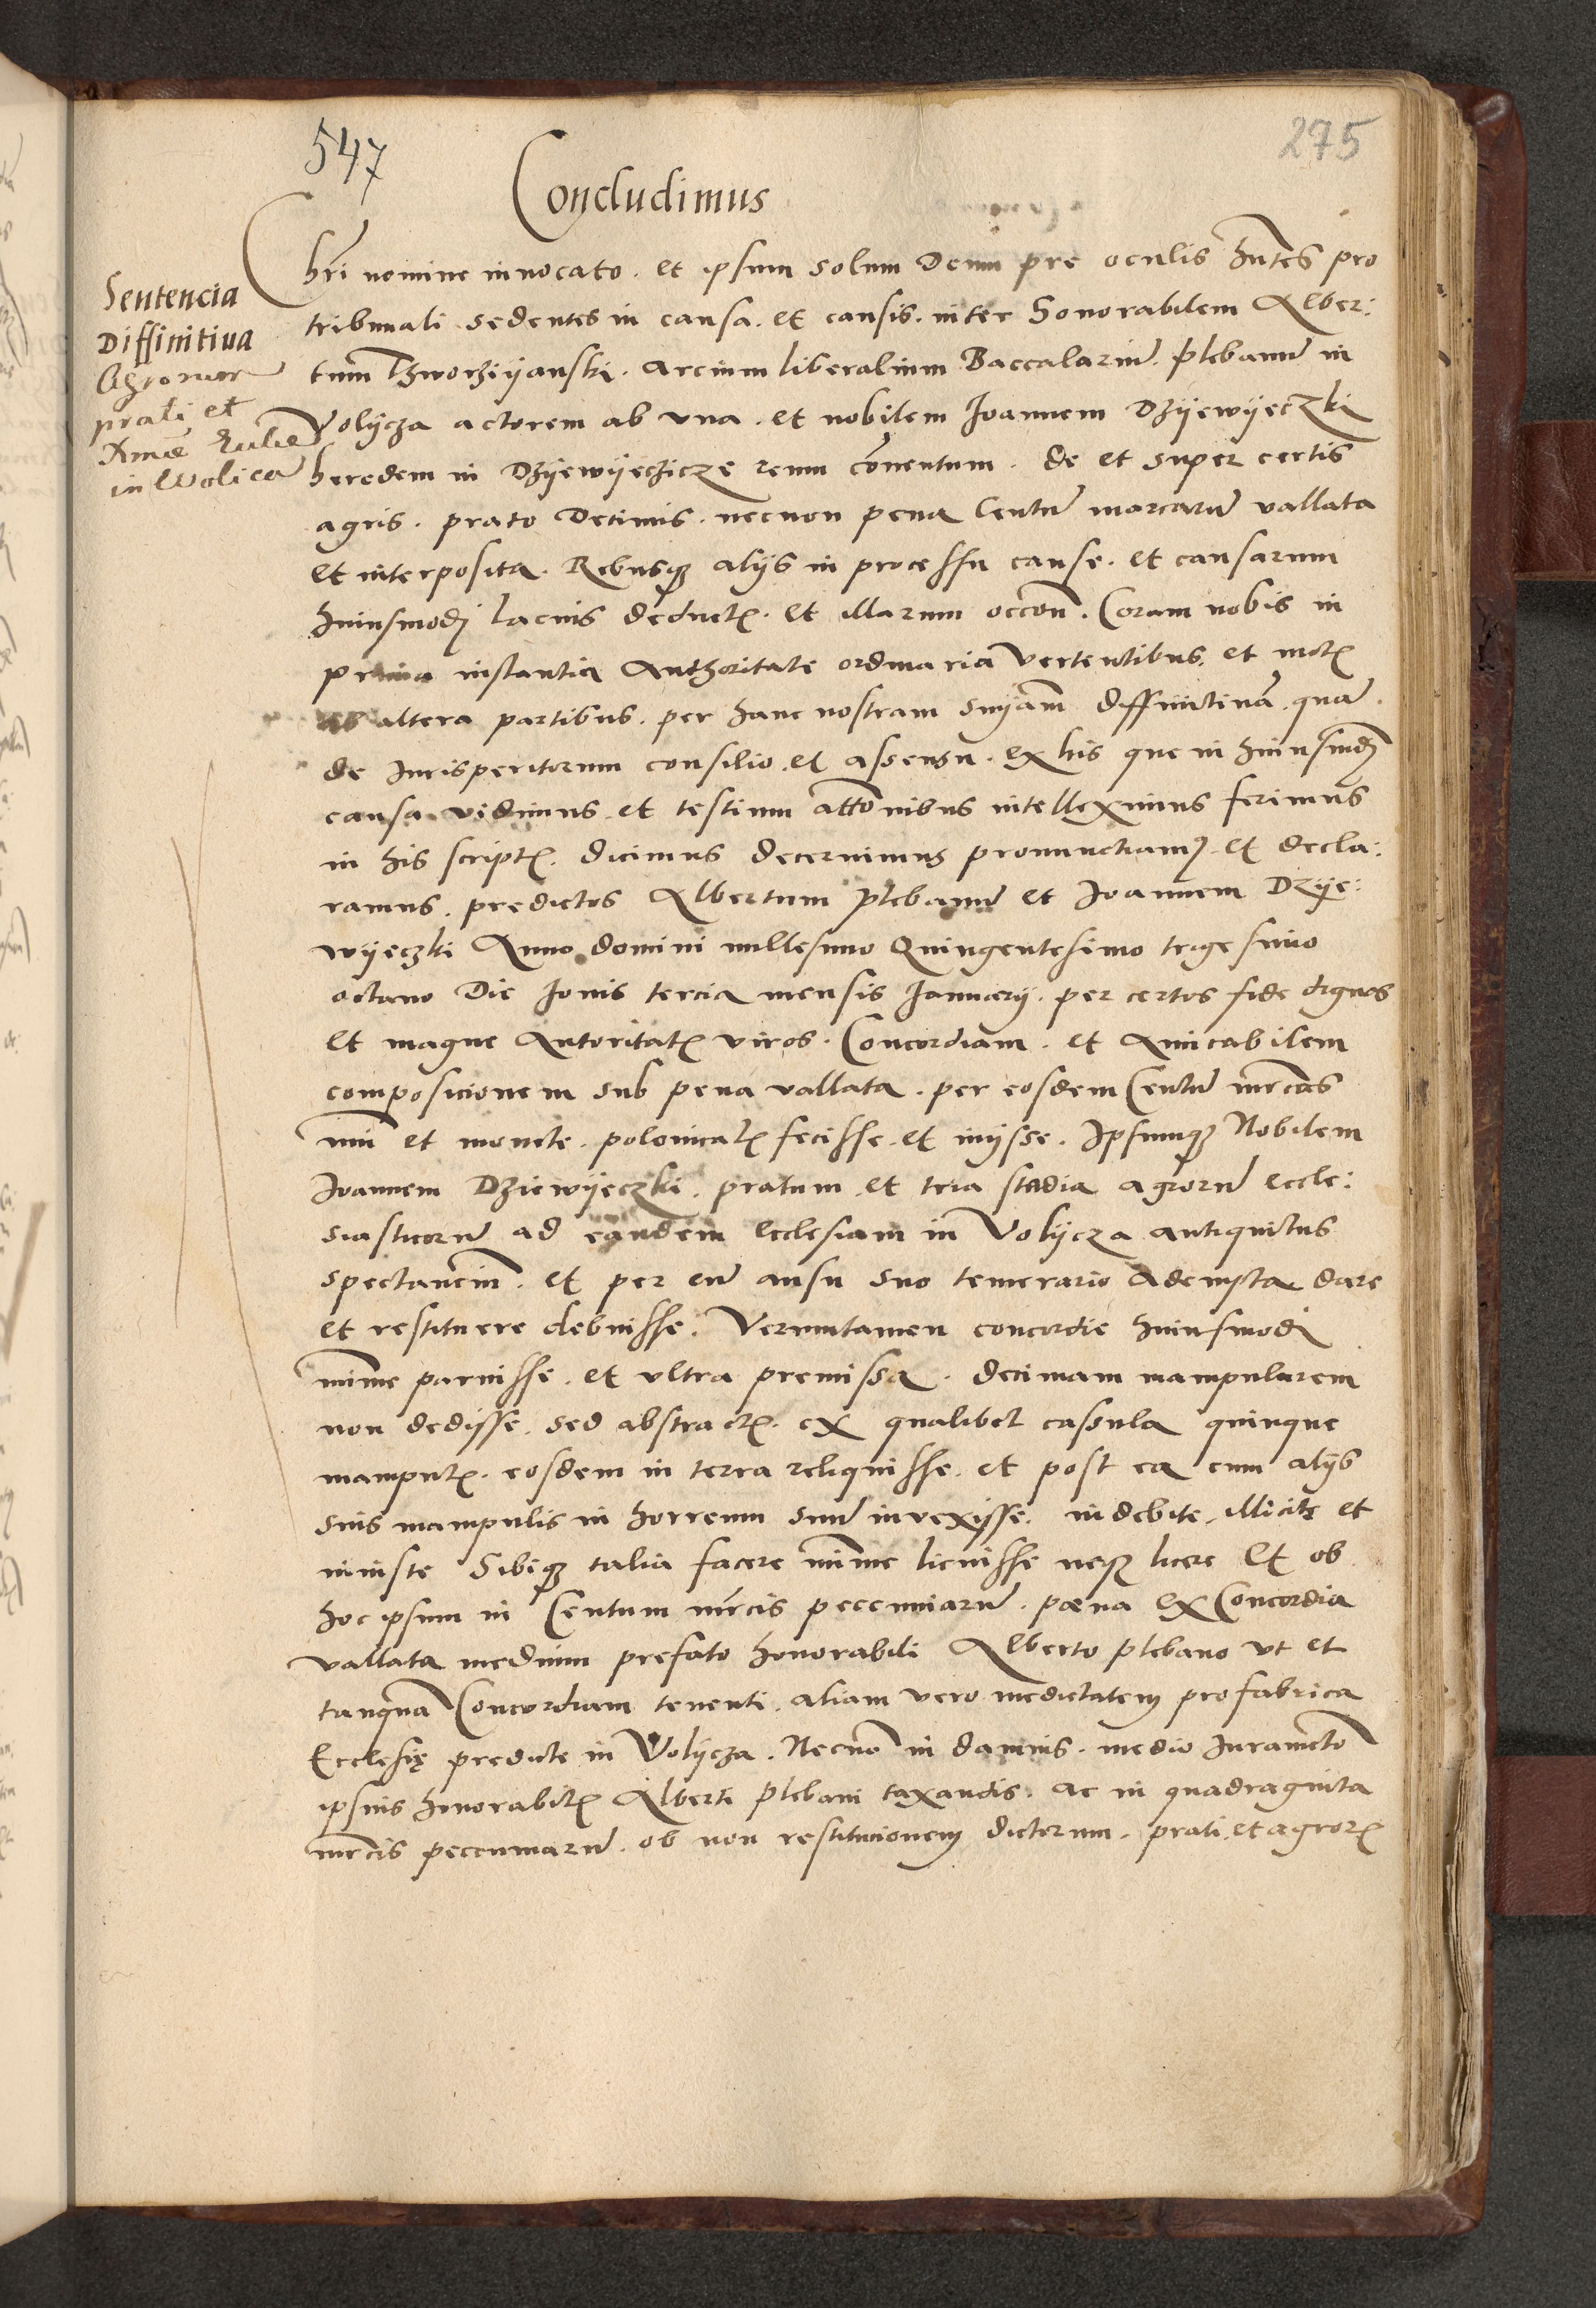 547
275
Concludimus
Sentencia
Diffinitiva
Agrorum
prati et
in Wolica
Chri nomine invocato. et ipsum solum Deum pre oculis hntes pro
tribunali sedentes in causa. et causis. inter Honorabilem Alber:
tum Thworziyanski. Arcium liberalium Baccalarium. plebanum in
Volijcza actorem ab una. et nobilem Joannem Dzijewijeczki
heredem in Dzijewijeczicze reum conventum. de et super certis
agris. prato Decimis. necnon pena Centum marcarum vallata
et interposita. Rebusque alijs in processu cause. et causarum
huiusmodj lacius deductis. et illarum occone. Coram nobis in
prima instantia Authoritate ordinaria vertentibus. et motis
ab altera partibus. per hanc nostram snyam diffinitivam. quam
de Jurisperitorum consilio. et assensu. ex his que in huiusmodj
causa vidimus et testium attonibus intelleximus ferimus
in his scriptis. dicimus decernimus pronunctiamus et decla:
ramus. predictos Albertum plebanum et Joannem Dzije:
wijeczki Anno domini millesimo Quingentesimo trigesimo
octavo Die Jovis tercia mensis Januarij. per certos fide dignos
et magne Autoritatis viros. Concordiam. et Amicabilem
composicionem sub pena vallata. per eosdem Centum mrcas
nui et monete. polonicalis fecisse. et inijsse. Ipsumque Nobilem
Joannem Dziewijeczki. pratum et tria stadia agrorum eccle:
siasticorum ad eandem Ecclesiam in Volijcza antiquitus
spectancium. et per eum ausu suo temerario Adempta dare
et restituere debuisse. Verumtamen concordie huiusmodi
minime paruisse. et ultra premissa. decimam mampularem
non dedisse. sed abstractis. ex qualibet cassula quinque
mampulis. eosdem in terra reliquisse. et post ea cum alijs
suis mampulis in horreum suum invexisse. indebite. illicite et
iniuste Sibique talia facere minime licuisse neque licere Et ob
hoc ipsum in Centum mrcis peccuniarum. pena ex Concordia
vallata medium prefato honorabili Alberto plebano ut et
tanquam Concordiam tenenti. aliam vero medietatem pro fabrica
Ecclesie predicte in Volijcza. Necnon in damnis. medio Juramento
ipsius honorabilis Alberti plebani taxandis. ac in quadraginta
mrcis peccuniarum. ob non restitucionem dictorum. prati. et agrorum